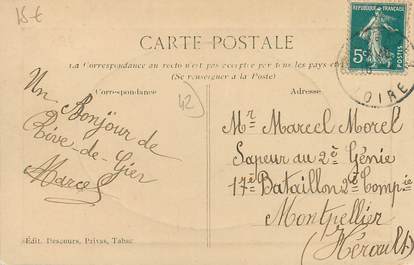 15 €
RÉPUBLIQUE FRANÇAISE
5c
LOIRE
CARTE POSTALE
La Correspondance au recto n'est pas acceptée par tous les pays
(Se renseigner à la Poste)
Correspondance
42
Adresse
Un Bonjour de
Rive-de-Gier
Marcel
Mr Marcel Morel
Sapeur du 2e Génie
17e Bataillon 2e Compie
Montpellier
(Hérault)
Édit. Descours, Privas, Tabac